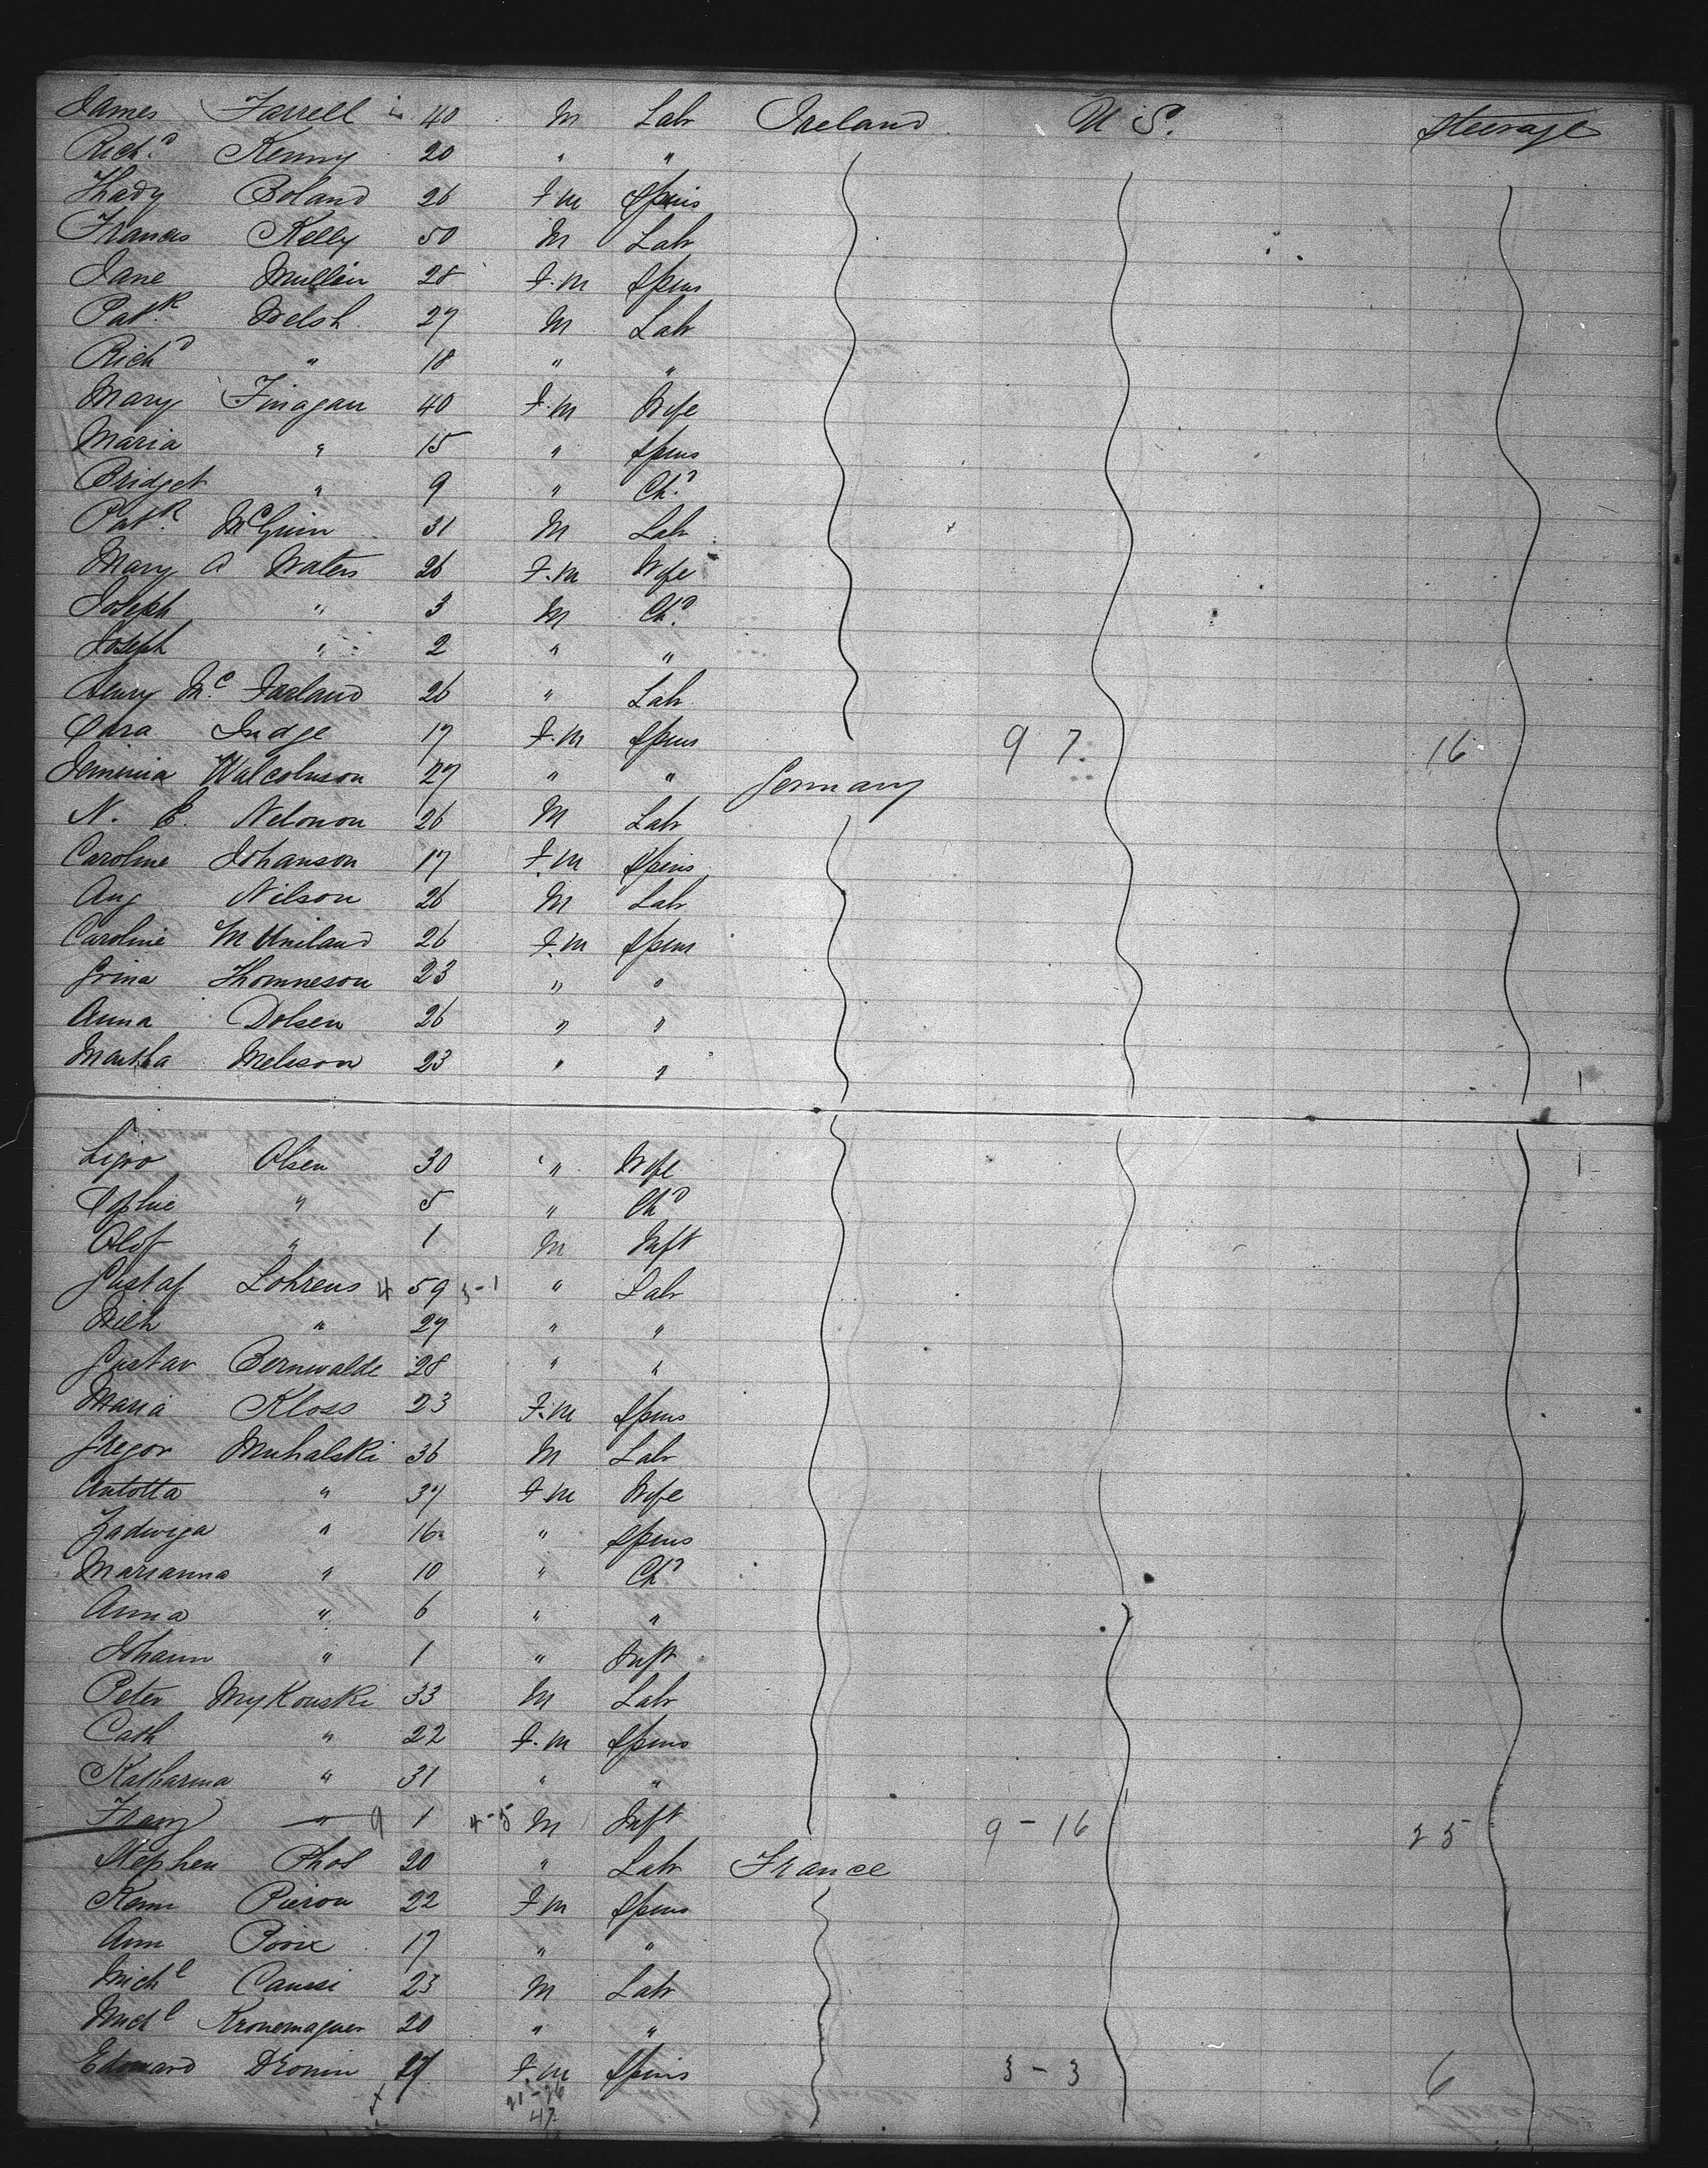 James Farrell 40 M Labr Ireland U S. Steerage
Richd Kenny 20 " "
Thady Boland 26 F.m Spins
Francis Kelly 50 M Labr
Jane Mullin 28 F.m Spins
Patk Welsh 27 M Labr
Richd " 18 " "
Mary Finagan 40 F.m Wife
Maria " 15 " Spins
Bridget " 9 " Chd
Patk McGuin 31 M Labr
Mary A Waters 26 F.m Wife
Joseph " 3 M Chd
Joseph " 2 " "
Henry Mc Farland 26 " Labr
Judge 17 F.m Spins 9 7 16
Jemimia Walcolmson 27 " " Germany
N. Nelonon 26 M Labr
Caroline Johanson 17 F.m Spins
Aug Nilson 26 M Labr
Caroline 26 F.m Spins
Thomneson 23 " "
Anna Dolsen 26 " "
Martha Melsson 23 " " 1
Olsen 30 " Wife 1
Sophie " 5 " Chd
Olof " 1 M Inft
Gustaf Lohrens 4 59 3-1 " Labr
Wilh " 27 " "
Gustav Bernwalde 28 " "
Maria Kloss 23 F.m Spins
Gregor Muhalski 36 M Labr
Antotta " 37 F.m Wife
Zadwiga " 16 " Spins
Marianna " 10 " Chd
Anna " 6 " "
Johann " 1 " Inft
Peter Mykouski 33 M Labr
Cath " 22 F.m Spins
Katharina " 31 " "
Franz " 9 1 4-5 M Inft 9-16 25
Stephen Phol 20 " Labr France
Pieron 22 F.m Spins
Ann 17 " "
Michl Caussi 23 M Labr
Michl Kronemaguer 20 " "
Edouard Dronin 27 F.m Spins 3-3 6
21-26
47